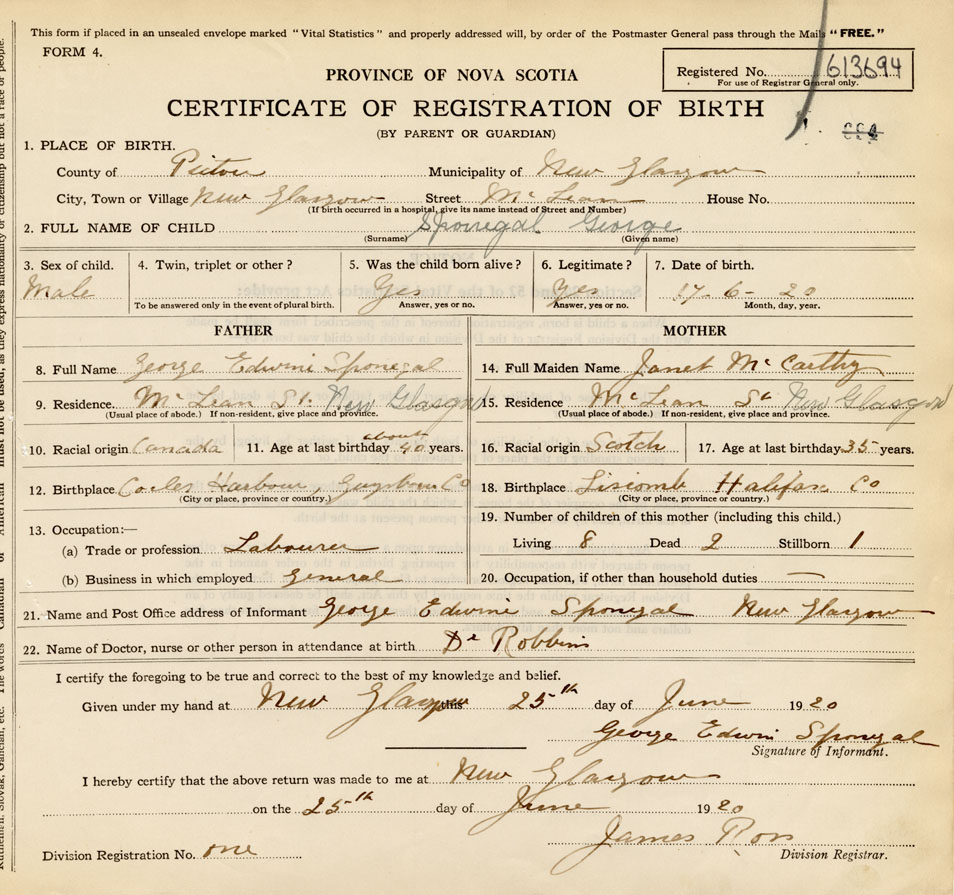 This form if placed in an unsealed envelope marked "Vital Statistics" and properly addressed will, by order of the Postmaster General pass through the Mails "FREE."
FORM 4.
PROVINCE OF NOVA SCOTIA
Registered No. 613694
For use of Registrar General only.
CERTIFICATE OF REGISTRATION OF BIRTH
(BY PARENT OR GUARDIAN)
1. PLACE OF BIRTH.
County of Pictou Municipality of New Glasgow
City, Town or Village New Glasgow Street McLean House No.
(If birth occurred in a hospital, give its name instead of Street and Number)
2. FULL NAME OF CHILD Sponegal George
(Surname) (Given name)
3. Sex of child. 4. Twin, triplet or other? 5. Was the child born alive? 6. Legitimate? 7. Date of birth.
Male Yes Yes 17-6-20
To be answered only in the event of plural birth. Answer, yes or no. Answer, yes or no. Month, day, year.
FATHER MOTHER
8. Full Name George Edwin Sponegal 14. Full Maiden Name Janet McCarthy
9. Residence. McLean St. New Glasgow 15. Residence McLean St New Glasgow
(Usual place of abode.) If non-resident, give place and province. (Usual place of abode.) If non-resident, give place and province.
10. Racial origin Canada 11. Age at last birthday about 40 years. 16. Racial origin Scotch 17. Age at last birthday 35 years.
12. Birthplace Harbour, Guysboro Co 18. Birthplace Liscomb Halifax Co
(City or place, province or country.) (City or place, province or country.)
13. Occupation:—
19. Number of children of this mother (including this child.)
(a) Trade or profession Labourer Living 8 Dead 2 Stillborn 1
(b) Business in which employed General 20. Occupation, if other than household duties —
21. Name and Post Office address of Informant George Edwin Sponegal New Glasgow
22. Name of Doctor, nurse or other person in attendance at birth Dr Robbins
I certify the foregoing to be true and correct to the best of my knowledge and belief.
Given under my hand at New Glasgow this 25th day of June 1920
George Edwin Sponegal
Signature of Informant.
I hereby certify that the above return was made to me at New Glasgow
on the 25th day of June 1920
James Ross
Division Registration No. one Division Registrar.